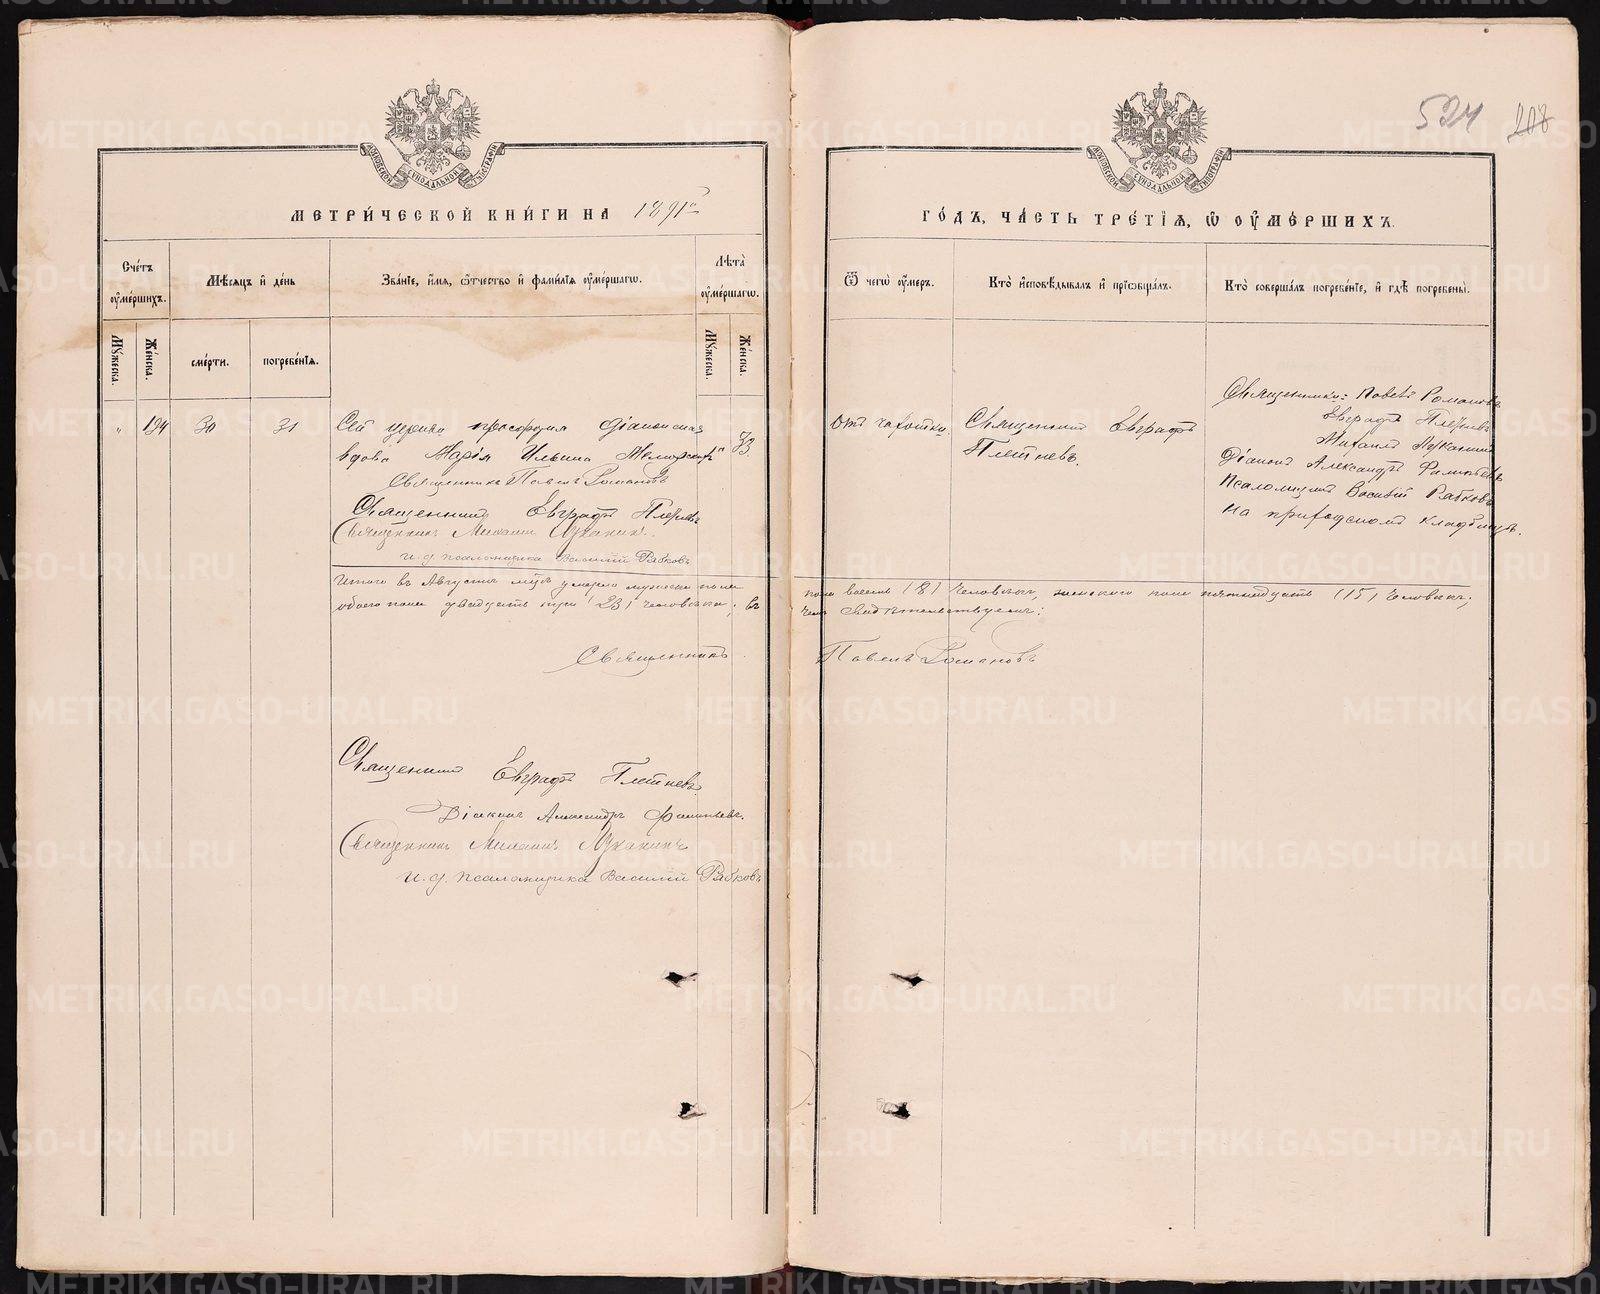 МЕТРИ́ЧЕСКОЙ КНИ́ГИ НА 1891й
Сче́тъ ᲂу҆ме́ршихъ.
Мѣ́сяцъ и҆ де́нь
Зва́нїе, и҆́мя, ѻ҆́тчество и҆ фами́лїя ᲂу҆ме́ршагѡ.
Лѣ́та ᲂу҆ме́ршагѡ.
Мꙋ́жеска. Же́нска. сме́рти. погребе́нїя. Мꙋ́жеска. Же́нска.
" 194 30 31 Сей церкви просфорня діаконская
вдова Марія Ильина " 73.
Священникъ Павелъ Романовъ
Священникъ Евграфъ Плетневъ
Священникъ Михаилъ Луканинъ.
И. д. псаломщика Василій Рябковъ
Итого въ Августѣ мцѣ умерло мужеска пола
обоего пола двадцать три (23) человѣка; въ
Священникъ
Священникъ Евграфъ Плетневъ.
Діаконъ Александръ
Священникъ Михаилъ Луканинъ
И. д. псаломщика Василій Рябковъ
524 208
МОСКОВСКОЙ СѴНОДАЛЬНОЙ ТИПОГРАФІИ
ГО́ДЪ, ЧА́СТЬ ТРЕ́ТЇЯ, Ѽ ОУ҆МЕ́РШИХЪ.
Ѿ чегѡ̀ ᲂу҆́меръ.
Кто̀ и҆сповѣ́дывалъ и҆ прїѡбща́лъ.
Кто̀ соверша́лъ погребе́нїе, и҆ гдѣ̀ погребены̀.
Отъ чахотки.
Священникъ Евграфъ
Плетневъ.
Священники: Павелъ Романовъ
Евграфъ Плетневъ
Михаилъ Луканинъ
Діаконъ Александръ
Псаломщикъ Василій Рябковъ
На приходскомъ кладбищѣ.
пола восемь (8) человѣкъ, женскаго пола пятнадцать (15) человѣкъ;
чемъ свидѣтельствуемъ:
Павелъ Романовъ
METRIKI.GASO-URAL.RU